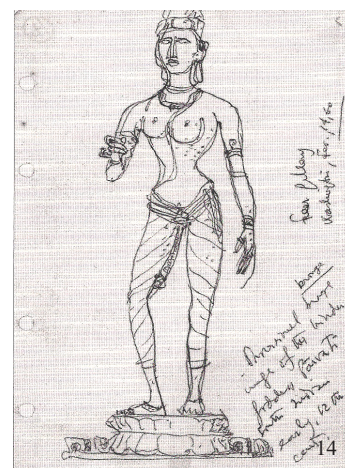 Freer Gallery
Washington,
bronze
Processional
image of the hindu
goddess Parvati
south indian
early, 12 th
cent.
14